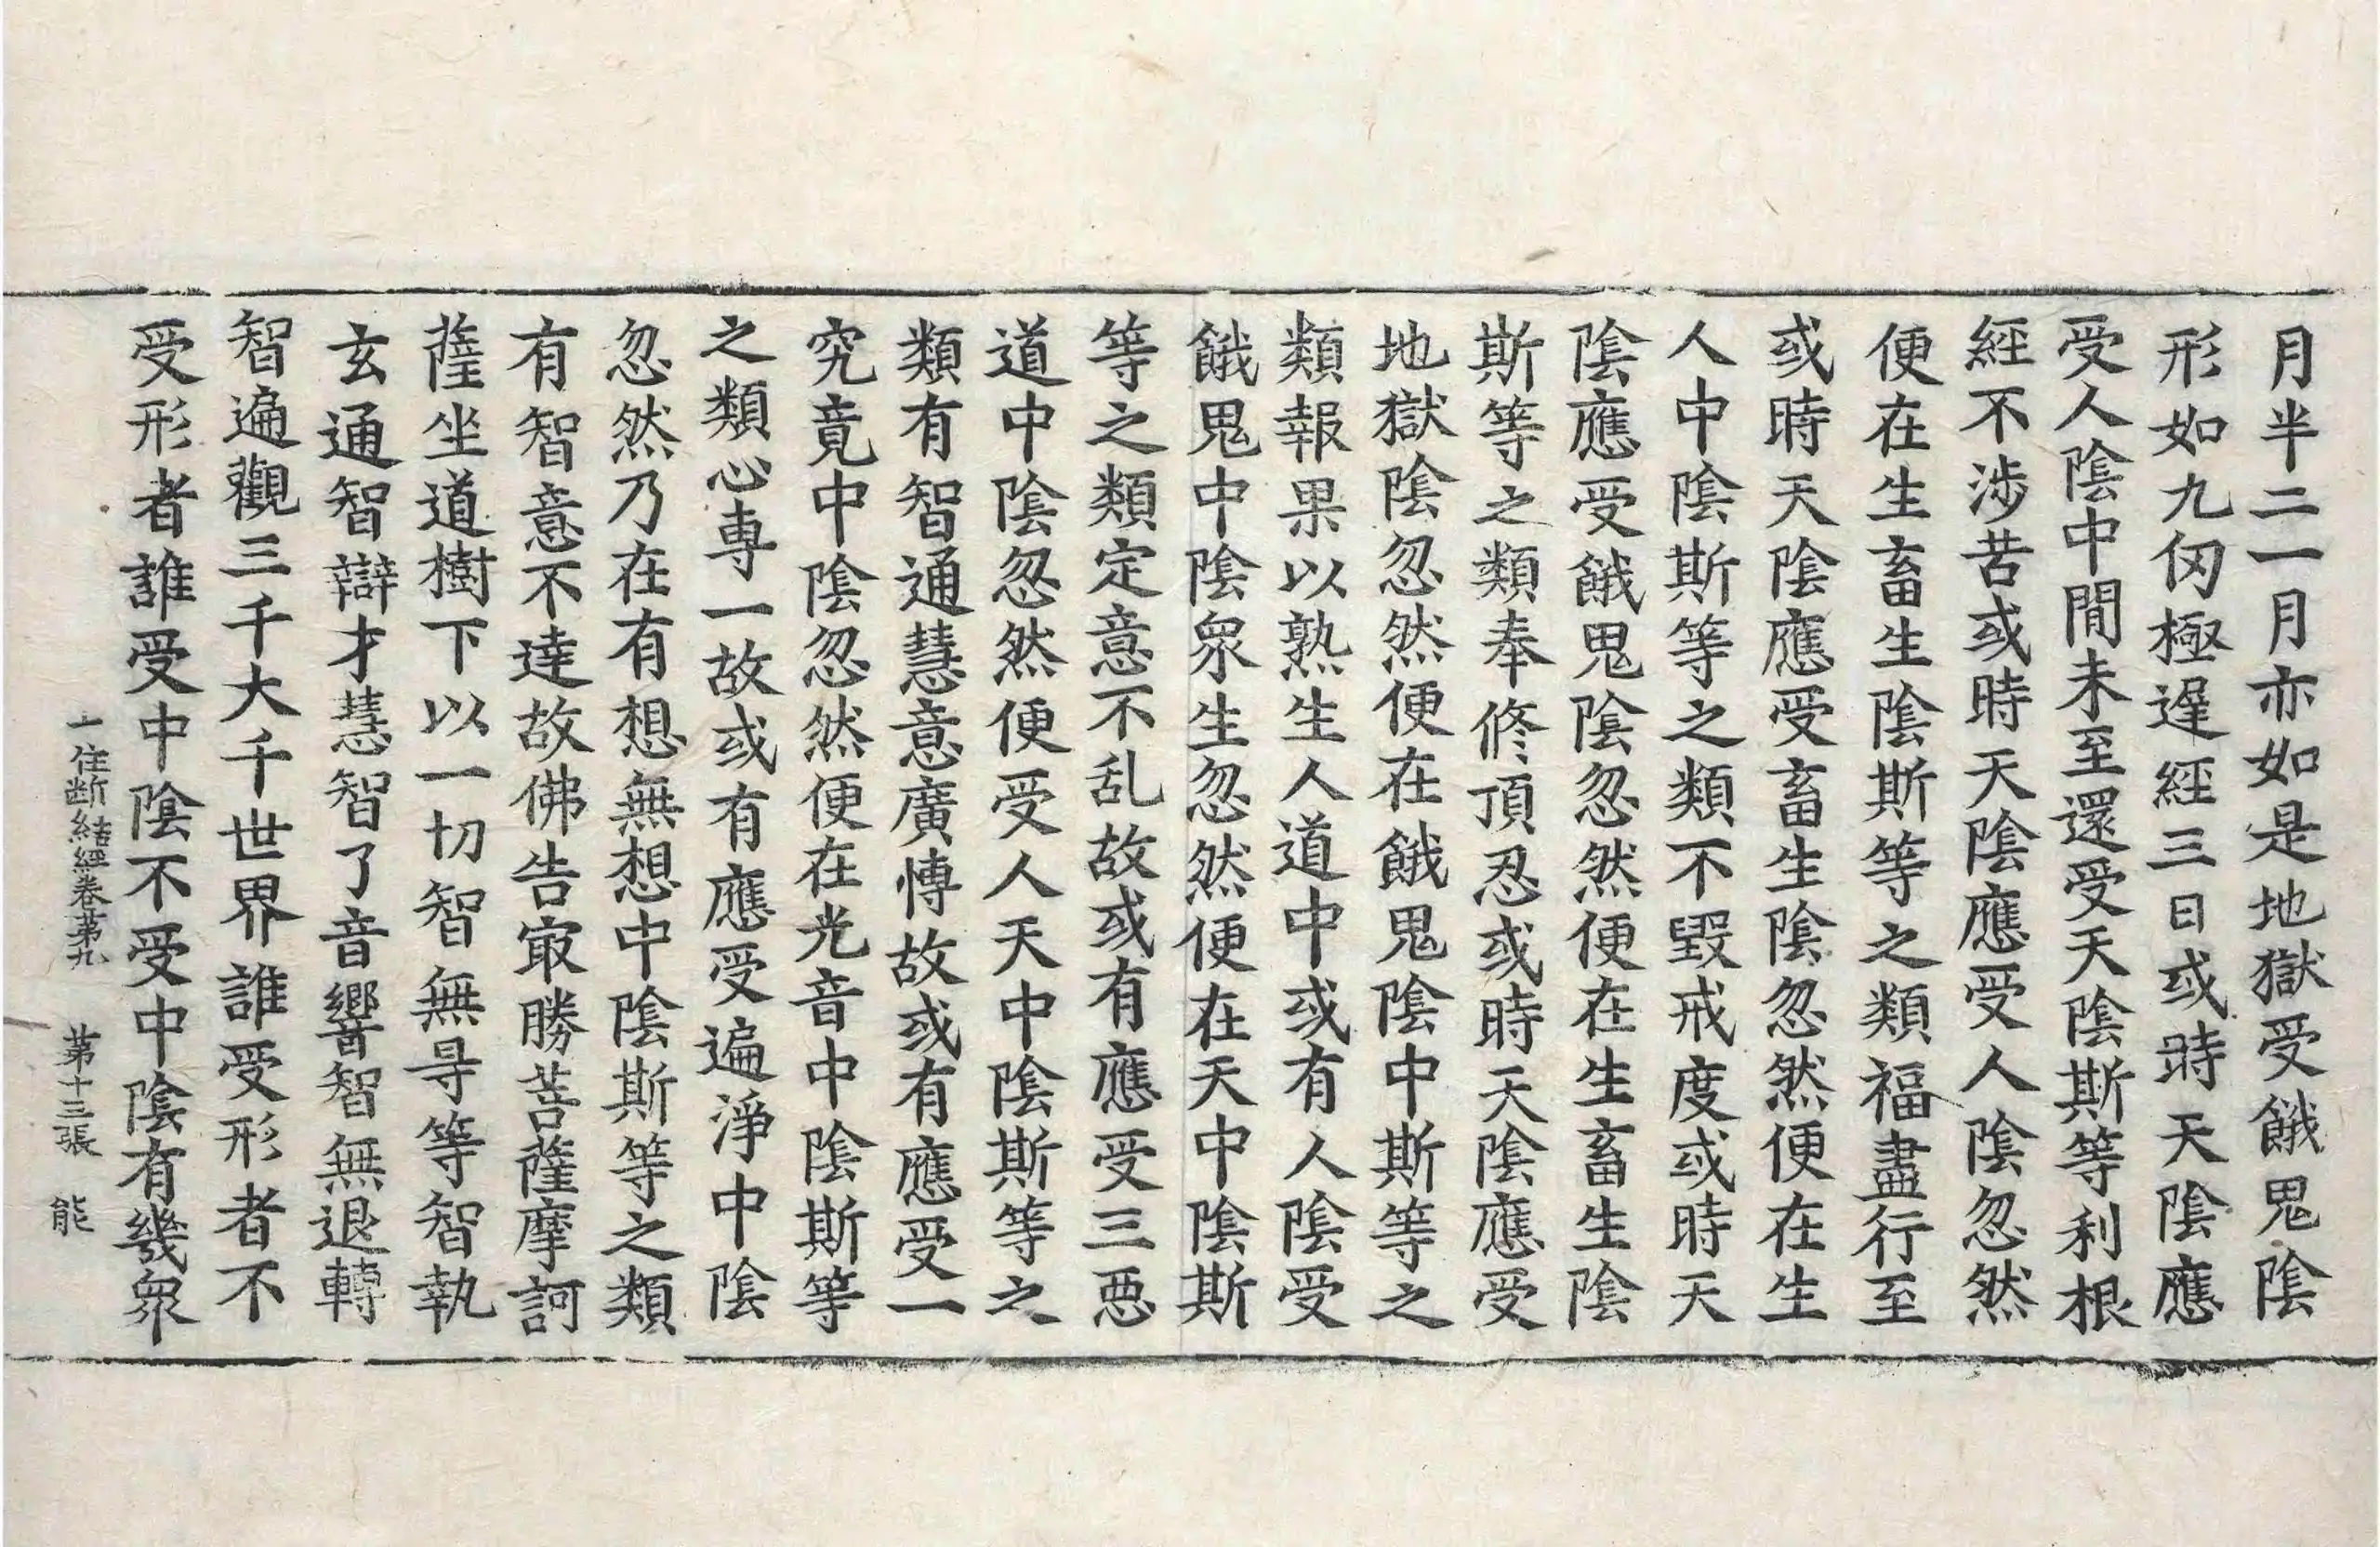 月半二一月亦如是地獄受餓鬼陰
形如九仞極遅經三日或時天陰應
受人陰中間未至還受天陰斯等利根
經不涉苦或時天陰應受人陰忽然
便在生畜生陰斯等之類福盡行至
或時天陰應受畜生陰忽然便在生
人中陰斯等之類不毀戒度或時天
陰應受餓鬼陰忽然便在生畜生陰
斯等之類奉修頂忍或時天陰應受
地獄陰忽然便在餓鬼陰中斯等之
類報果以熟生人道中或有人陰受
餓鬼中陰衆生忽然便在天中陰斯
等之類定意不乱故或有應受三惡
道中陰忽然便受人天中陰斯等之
類有智通慧意廣愽故或有應受一
究竟中陰忽然便在光音中陰斯等
之類心専一故或有應受遍淨中陰
忽然乃在有想無想中陰斯等之類
有智意不逹故佛告㝡勝菩薩摩訶
薩坐道樹下以一切智無㝵等智執
玄通智辯才慧智了音響智無退轉
智遍觀三千大千世界誰受形者不
受形者誰受中陰不受中陰有幾衆
十住断結經卷苐九 苐十三張 能